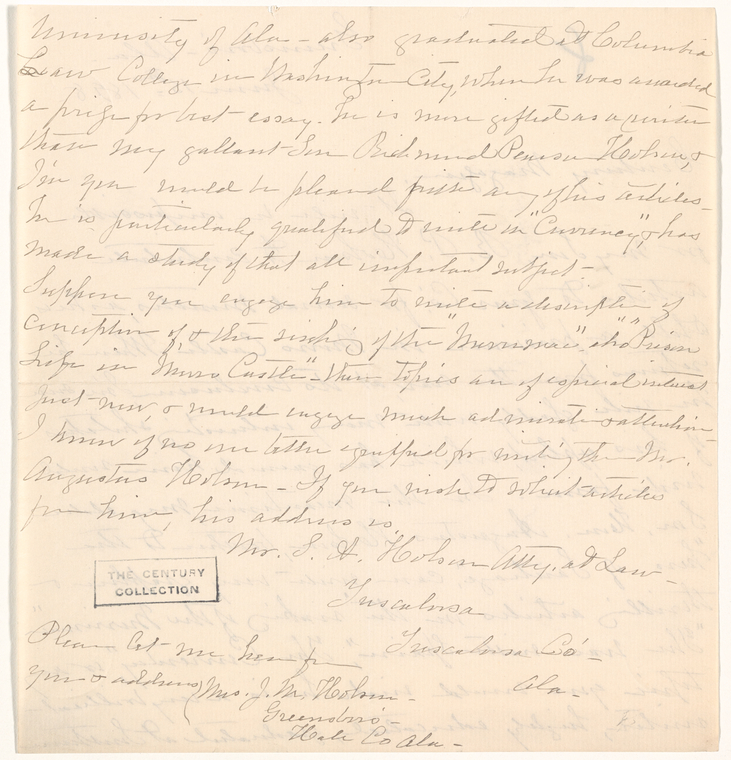 University of Ala - also graduated at Columbia
Law College in Washington City, when he was awarded
a prize for best essay. He is more gifted as a writer
than my gallant Son Richmond Pearson Hobson, &
I'm you would be pleased with any of his articles -
He is particularly qualified to write on "Currency", & has
made a study of that all important subject -
Suppose you engage him to write a description of
conception of & the sinking of the "Merrimac", also "Prison
Life in "Morro Castle" - these topics are of especial interest
just now & would engage much admiration & attention -
I know of no one better equipped for writing than Mr.
Augustus Hobson - If you wish to solicit articles
from him, his address is,
Mr. S. A. Hobson Atty. at Law -
Tuscaloosa
Tuscaloosa Co -
Ala -
THE CENTURY
COLLECTION
Please let me hear from
you & address
Mrs. J. M. Hobson -
Greensboro -
Hale Co Ala -